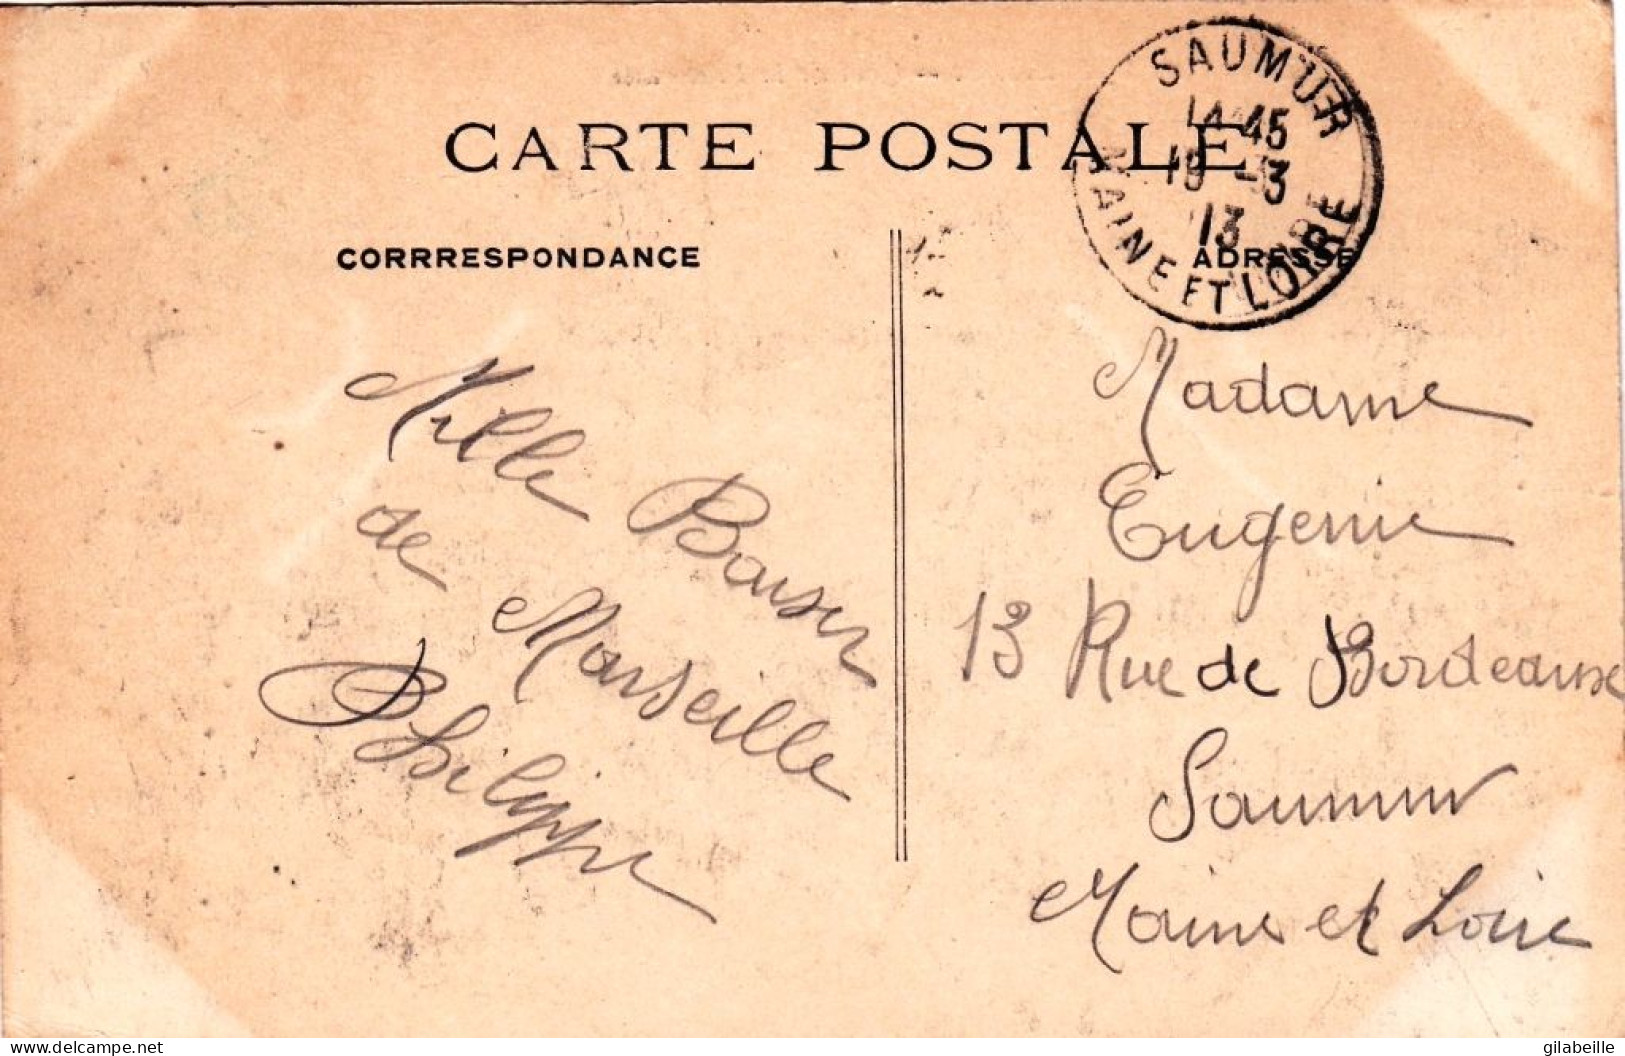 CARTE POSTALE
CORRRESPONDANCE
ADRESSE
SAUMUR
14 45
-3
13
MAINE ET LOIRE
Mille Baiser
de Marseille
Philippe
Madame
Eugenie
13 Rue de Bordeaux
Saumur
Maine et Loire
delcampe.net
gilabeille